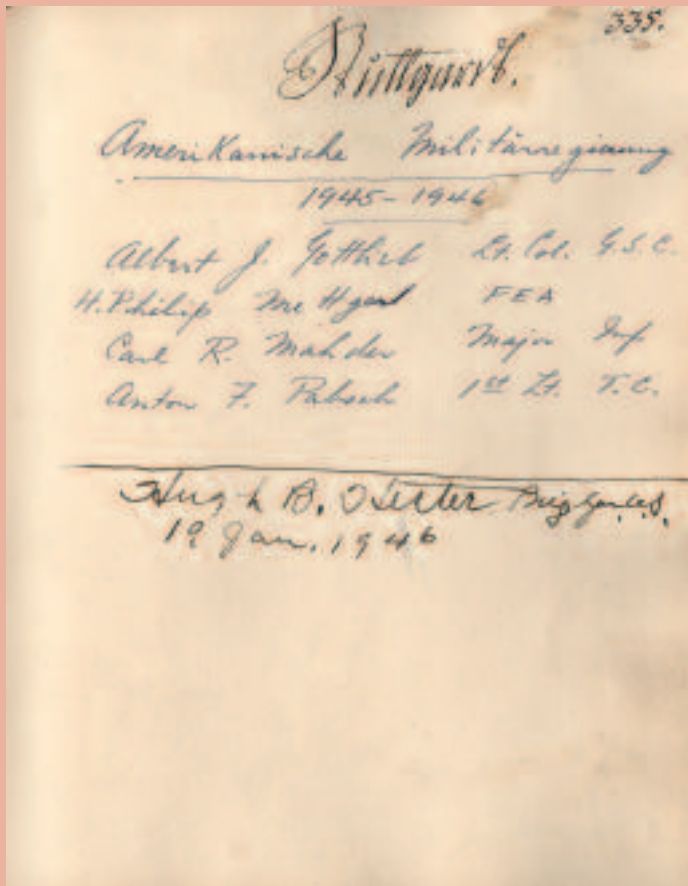 335.
Stuttgart.
Amerikanische Militärregierung
1945-1946
Albert J. Gottlieb Lt. Col. G.S.C.
H. Philip FEA
Carl R. Mahder Major Inf
Anton F. Pabsch 1st Lt. T.C.
Hugh B. Hester Brig Gen. U.S.
19 Jan. 1946